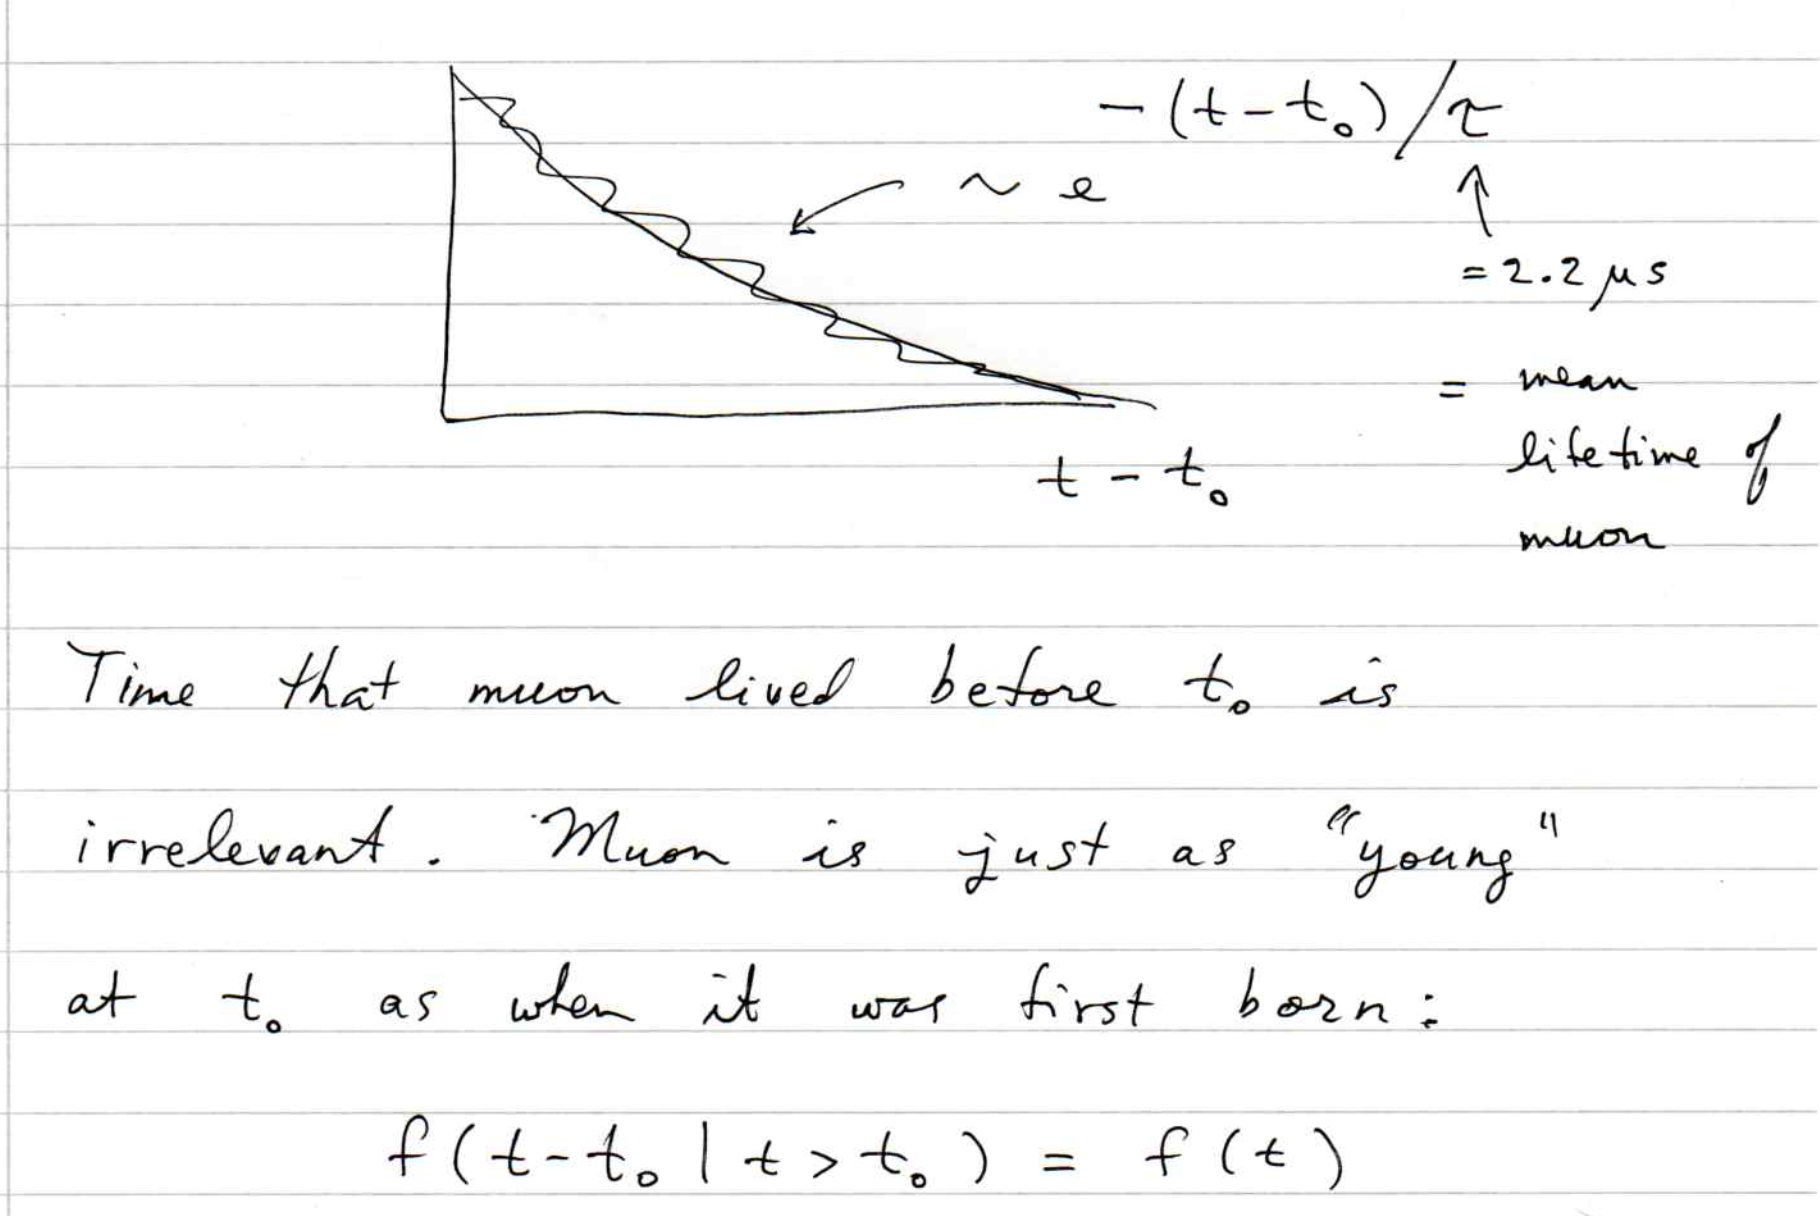 ~ e^{-(t-t₀)/τ}
↑
= 2.2 μs
= mean
lifetime of
muon
t - t₀
Time that muon lived before t₀ is
irrelevant. Muon is just as "young"
at t₀ as when it was first born:
f(t-t₀ | t > t₀) = f(t)